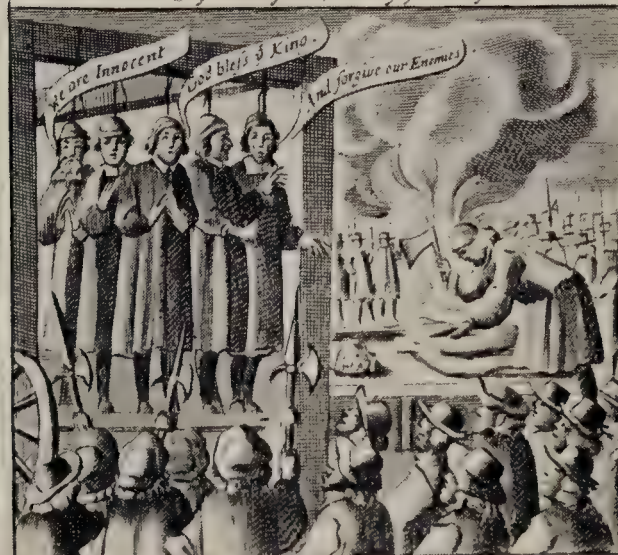 We are Innocent
God bleſs yͤ King.
And forgive our Enemies